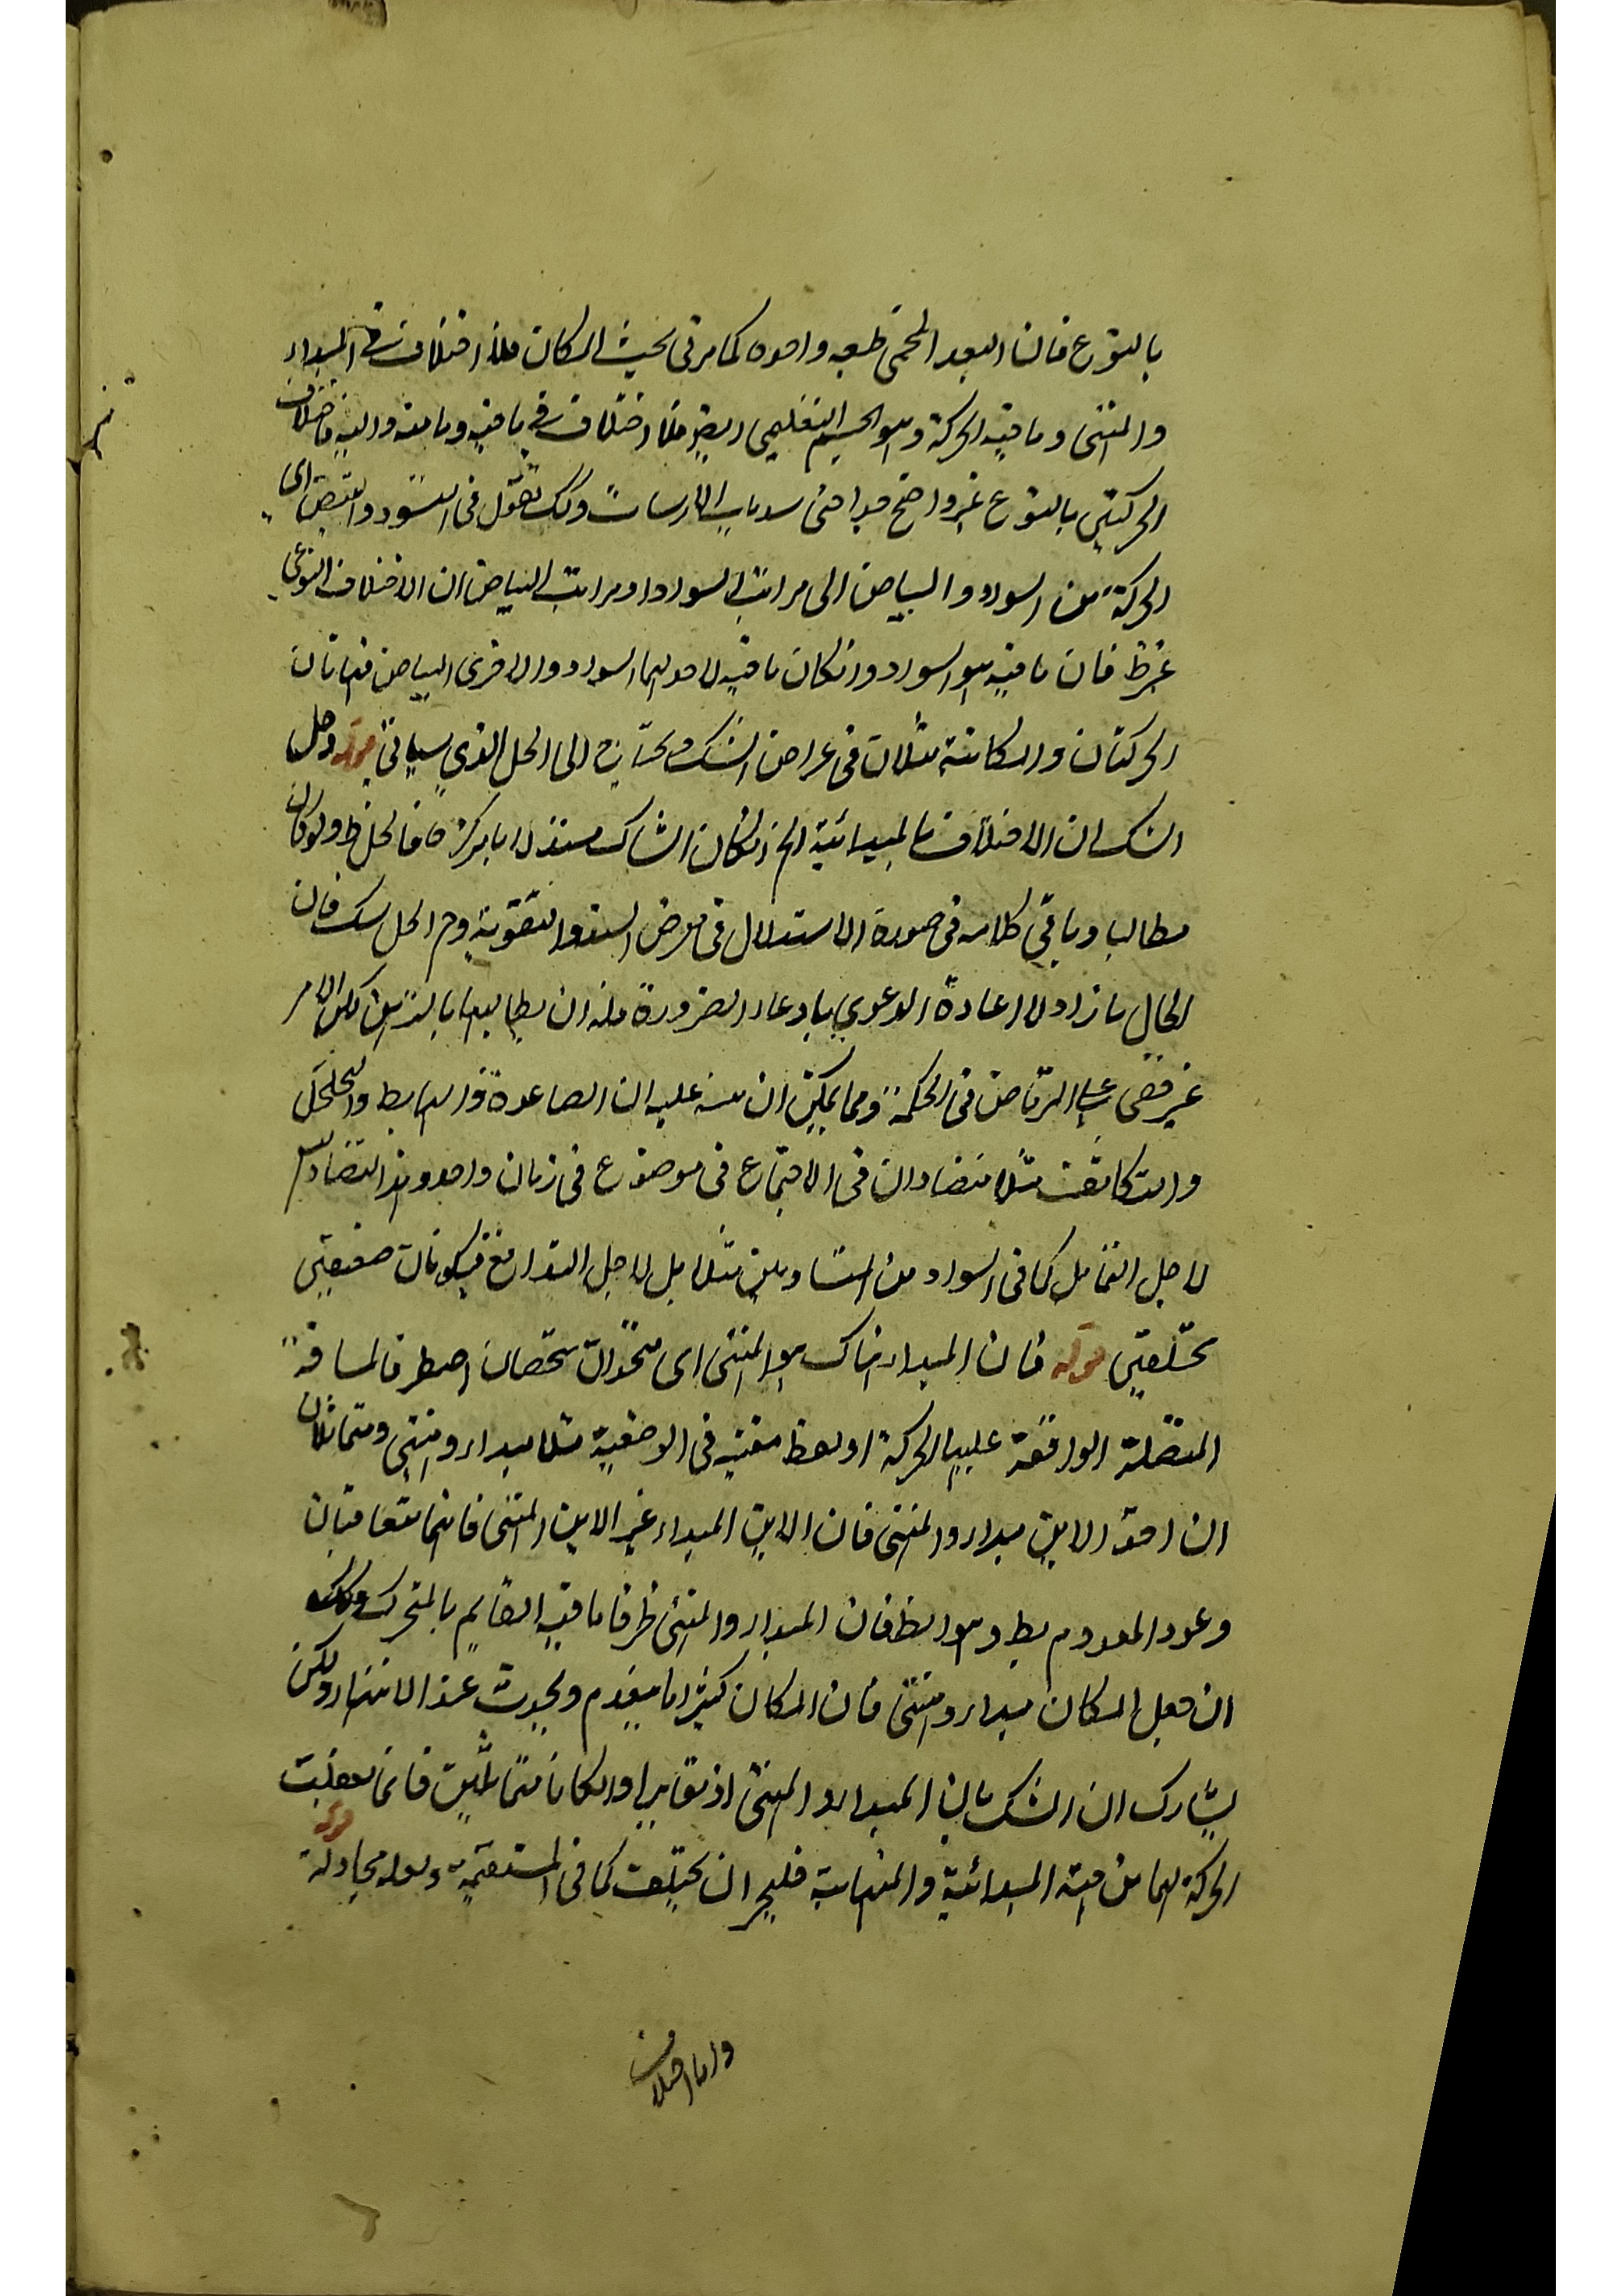 بالنوع فان البعد المحض طبيعة واحدة كما مر فى بحث المكان فلا اختلاف فى المبدا
والمنتهى وما فيه الحركة وهو الجسم التعليمى ايض فلا اختلاف فى ما فيه وما منه واليه فاختلاف
الحركتين بالنوع غير واضح جدا حتى الارسات وكك نقول فى التسود والتبيض اى
الحركة من السواد والبياض الى مراتب السواد او مراتب البياض ان الاختلاف النوعى
غير ظ فان ما فيه هو السواد وان كان ما فيه لاحدهما السواد والاخرى البياض فهاتان
الحركتان والمكانية مثلان فى اعراض الشك ويحتاج الى الحل الذي سياتى قوله وحل
الشك ان الاختلاف بالمبدائية الخ ان كان الشاك مستدلا بما ذكره فالحل ظ ولو كان
مطالبا وباقى كلامه فى صورة الاستدلال فى معرض السند والتقوية وح الحل فان
الحال ما زاد الا اعادة الدعوي بادعاء الضرورة فله ان يطالبه بالبرهان لكن الامر
غير خفى على المرتاض فى الحكمة ومما يمكن ان ينبه عليه ان الصاعدة والهابط والتخلخل
والتكاثف مثلا متضادان فى الاجتماع فى موضوع فى زمان واحد وهذا التضاد ليس
لاجل التماثل كما فى السواد من المتساويين مثلا بل لاجل التدافع فيكونان حقيقتين
مختلفتين قوله فان المبدا هناك هو المنتهى اى متحدان شخصا ان اخذ طرفا لمسافة
المتصلة الواقعة عليها الحركة او نقطة معينة فى الوضعية مثلا مبدا ومنتهى ومتماثلان
ان اخذ الاين مبدا والمنتهى فان الاين المبدا غير الاين المنتهى فانهما متعاقبان
وعود المعدوم بط وهو الظ فان المبدا والمنتهى طرفا ما فيه القايم بالمتحرك وكك
ان جعل المكان مبدا ومنتهى فان المكان كثيرا ما ينعدم ويحدث عند الانتهاء ولكن
يشارك ان الشك بان المبدا والمنتهى اذ تغايرا وان كانا متماثلين فانما تعلقت
الحركة بهما من حيث المبدائية والمنتهائية فليجز ان يختلف كما فى المستقيمة ولعله مجادلة قوله
واما اختلاف